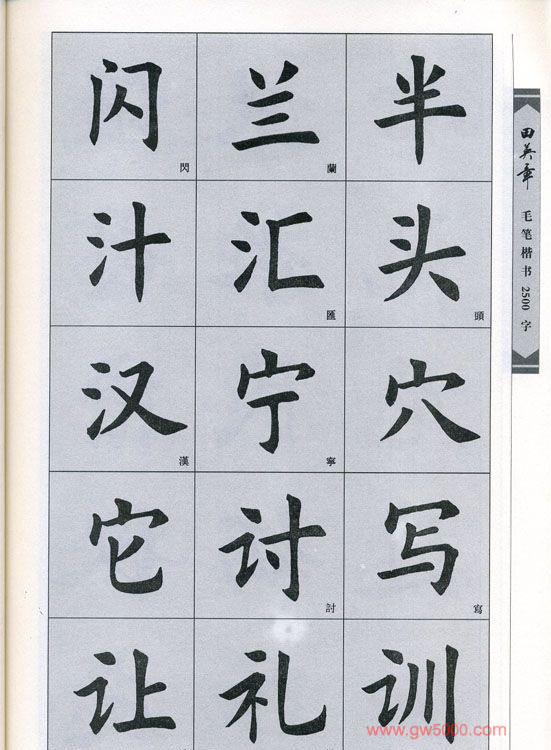 闪 兰 半
閃 蘭
汁 汇 头
匯 頭
汉 宁 穴
漢 寧
它 讨 写
討 寫
让 礼 训
田英章
毛笔楷书2500字
www.gw5000.com